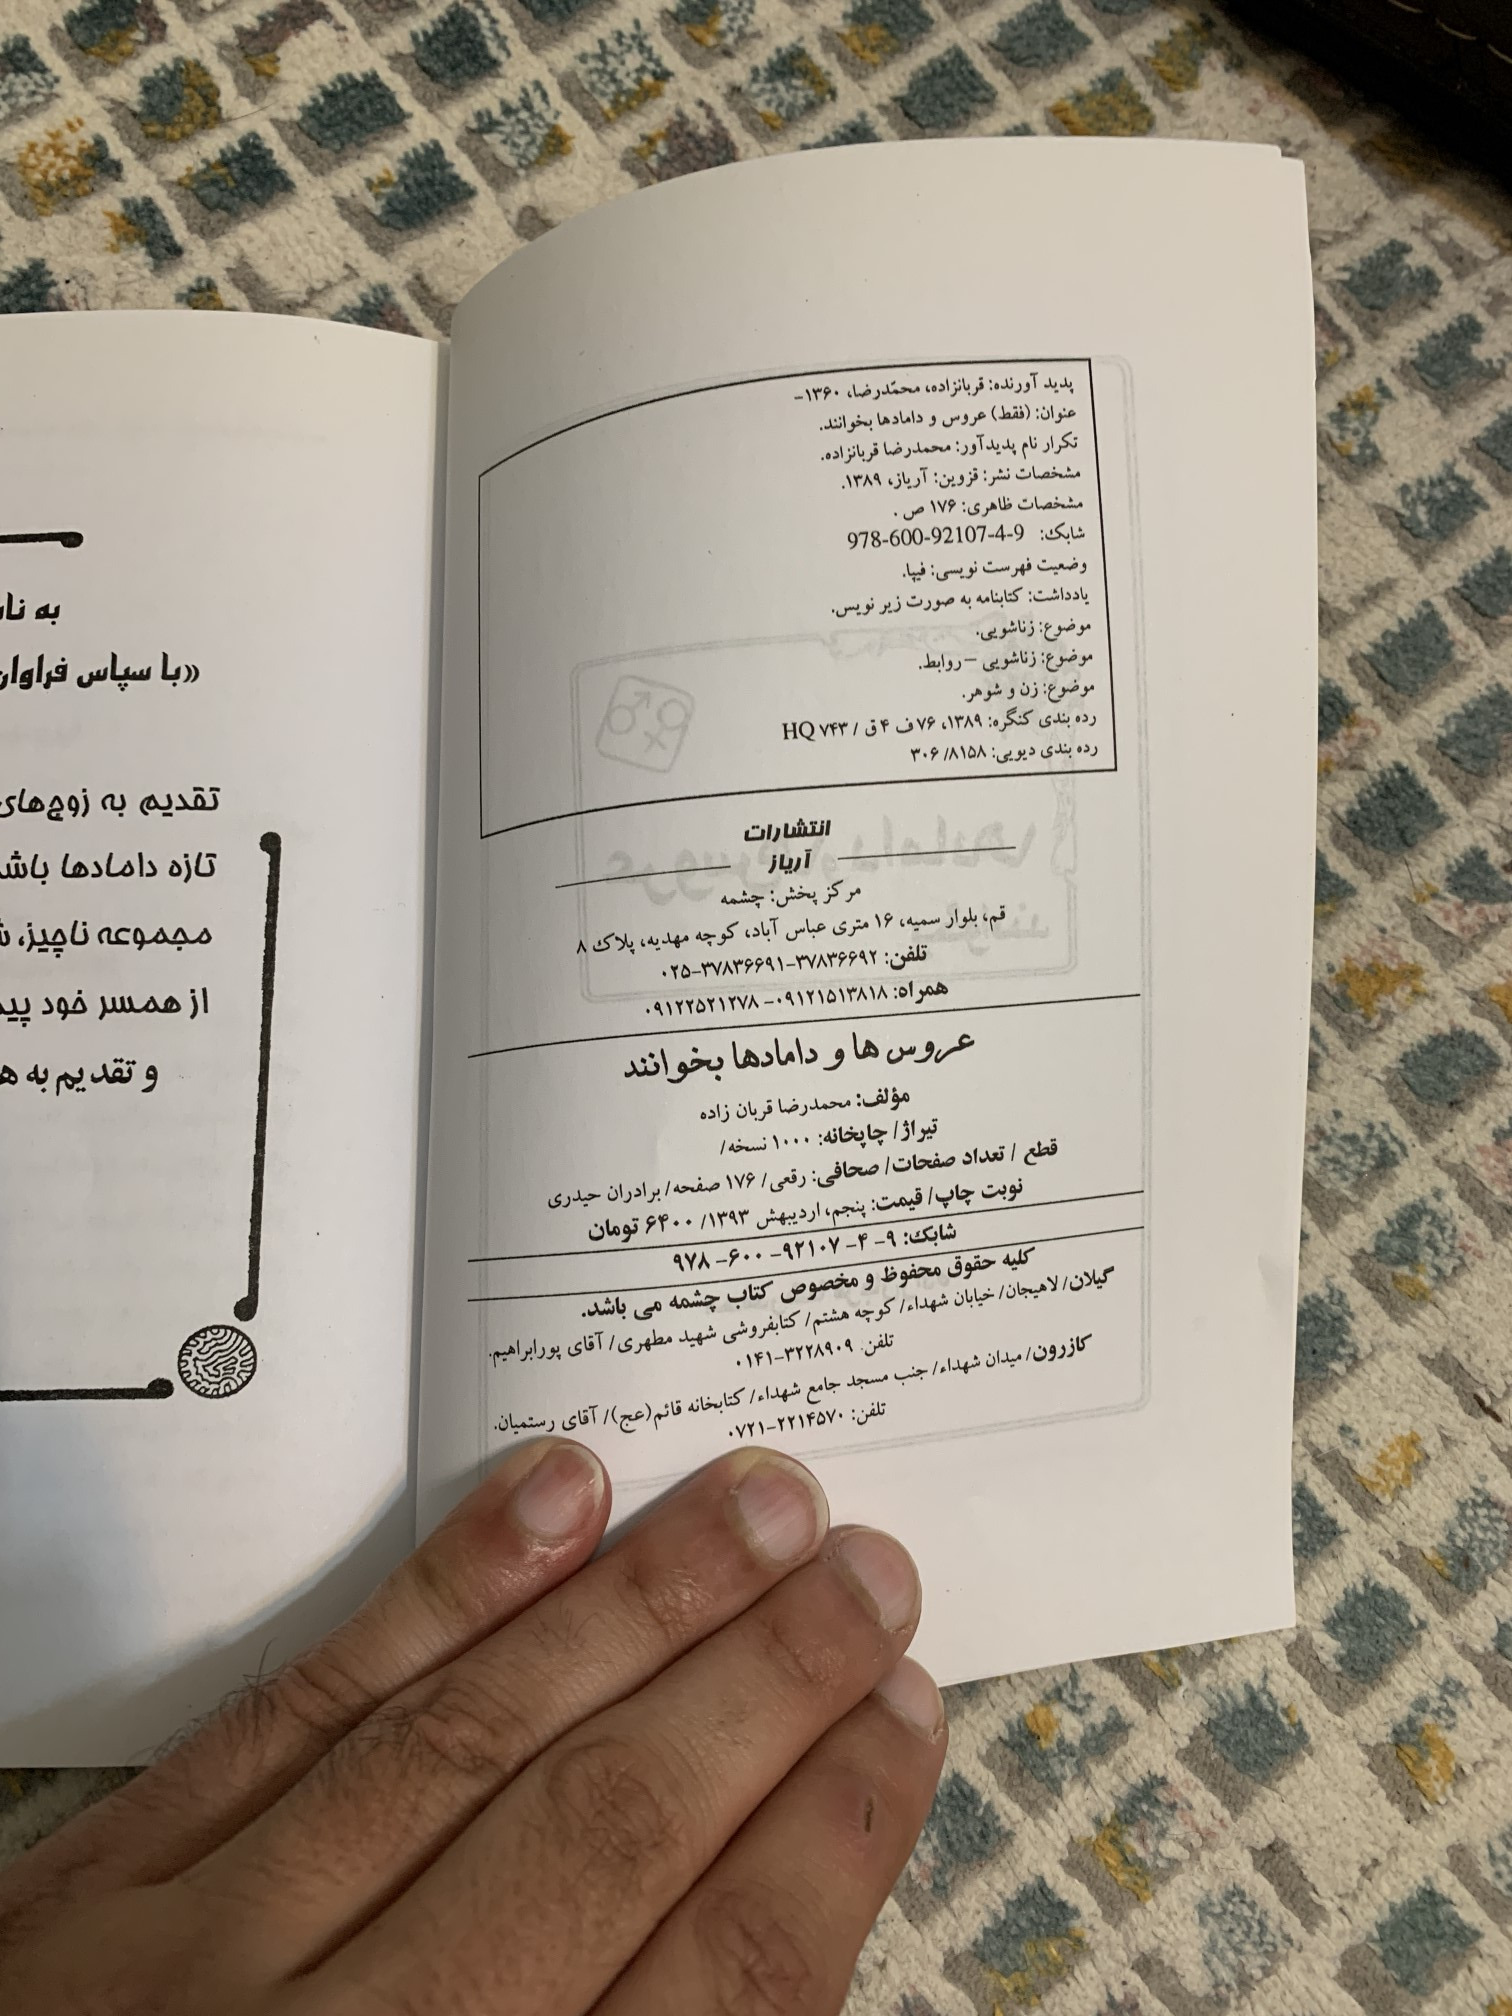 پدید آورنده: قربانزاده، محمّدرضا، ۱۳۶۰–
عنوان: (فقط) عروس و دامادها بخوانند.
تکرار نام پدیدآور: محمدرضا قربانزاده.
مشخصات نشر: قزوین: آریاز، ۱۳۸۹.
مشخصات ظاهری: ۱۷۶ ص .
شابک: 978-600-92107-4-9
وضعیت فهرست نویسی: فیپا.
یادداشت: کتابنامه به صورت زیر نویس.
موضوع: زناشویی.
موضوع: زناشویی – روابط.
موضوع: زن و شوهر.
رده بندی کنگره: ۱۳۸۹، ۷۶ ف ۴ ق / HQ ۷۴۳
رده بندی دیویی: ۳۰۶/۸۱۵۸
انتشارات
آریاز
مرکز پخش: چشمه
قم، بلوار سمیه، ۱۶ متری عباس آباد، کوچه مهدیه، پلاک ۸
تلفن: ۳۷۸۳۶۶۹۲–۳۷۸۳۶۶۹۱–۰۲۵
همراه: ۰۹۱۲۱۵۱۳۸۱۸- ۰۹۱۲۲۵۲۱۲۷۸
عروس ها و دامادها بخوانند
مؤلف: محمدرضا قربان زاده
تیراژ/ چاپخانه: ۱۰۰۰ نسخه/
قطع / تعداد صفحات/ صحافی: رقعی/ ۱۷۶ صفحه/ برادران حیدری
نوبت چاپ/ قیمت: پنجم، اردیبهش ۱۳۹۳/ ۶۴۰۰ تومان
شابک: ۹- ۴- ۹۲۱۰۷- ۶۰۰- ۹۷۸
کلیه حقوق محفوظ و مخصوص کتاب چشمه می باشد.
گیلان/ لاهیجان/ خیابان شهداء/ کوچه هشتم/ کتابفروشی شهید مطهری/ آقای پورابراهیم.
تلفن: ۳۲۲۸۹۰۹-۰۱۴۱
کازرون/ میدان شهداء/ جنب مسجد جامع شهداء/ کتابخانه قائم(عج)/ آقای رستمیان.
تلفن: ۲۲۱۴۵۷۰-۰۷۲۱
به
«با سپاس
تقدیم به زوج‌های
تازه دامادها
مجموعه ناچیز،
از همسر خود
و تقدیم به